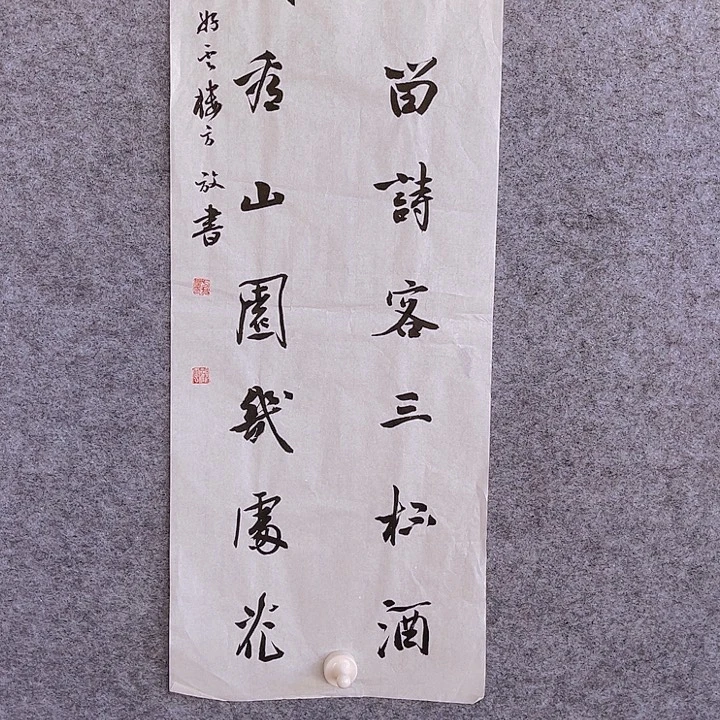 留詩客三杯酒
看山園幾處花
好雲樓方放書